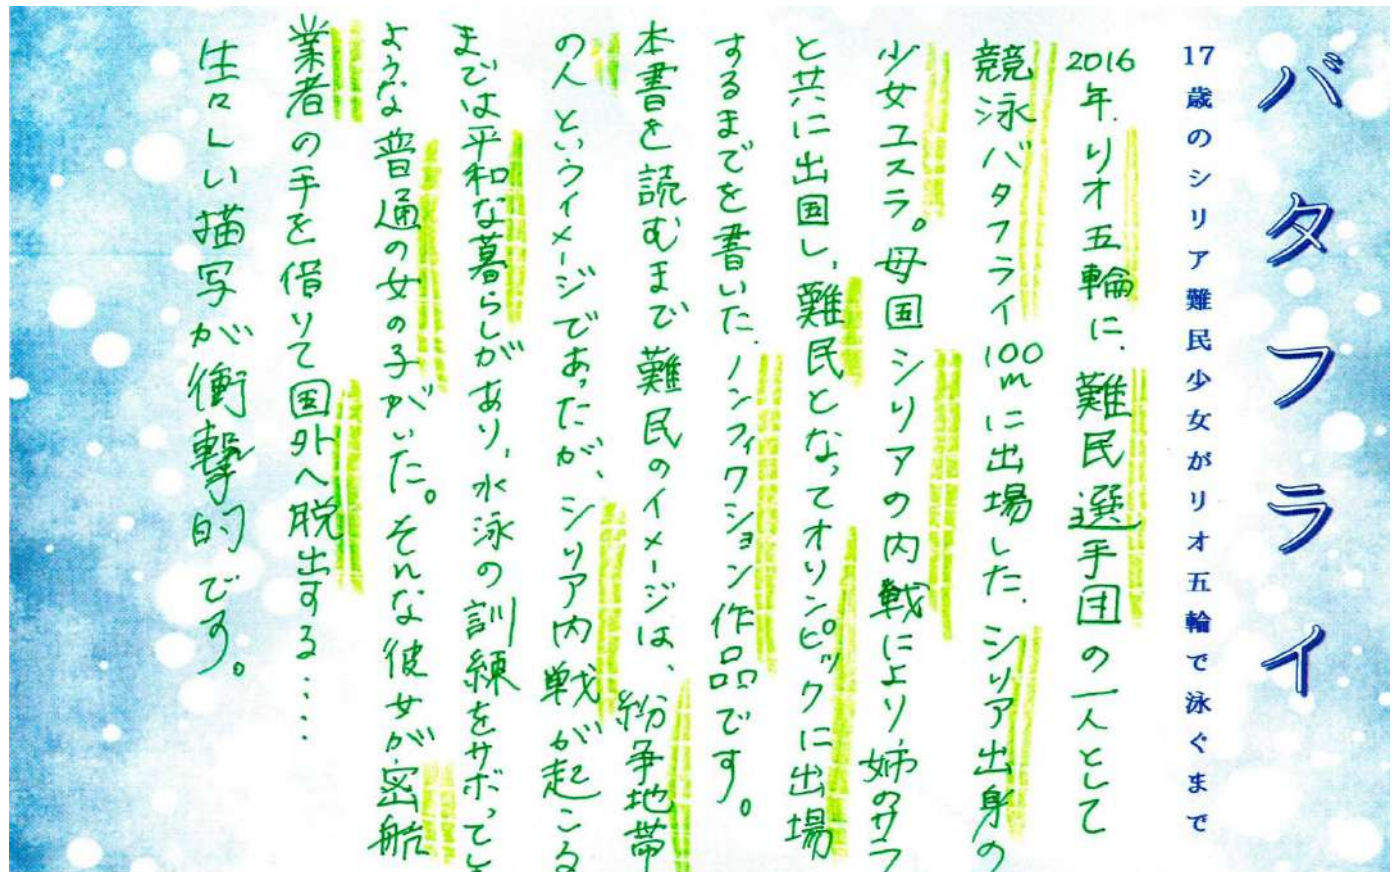 バタフライ
17歳のシリア難民少女がリオ五輪で泳ぐまで
2016年、リオ五輪に、難民選手団の一人として
競泳バタフライ100mに出場した、シリア出身の
少女ユスラ。母国シリアの内戦により、姉のサラ
と共に出国し、難民となってオリンピックに出場
するまでを書いた、ノンフィクション作品です。
本書を読むまで難民のイメージは、紛争地帯
の人というイメージであったが、シリア内戦が起こる
までは平和な暮らしがあり、水泳の訓練をサボってし
ような普通の女の子がいた。そんな彼女が、密航
業者の手を借りて国外へ脱出する・・・・
生々しい描写が衝撃的です。